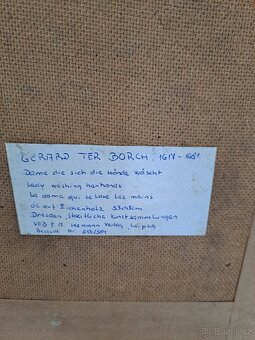 GERARD TER BORCH 1617-1681
Dame die sich die Hände wäscht
Lady washing her hands
La dame qui se lave les mains
Öl auf Eichenholz 53x43cm
Dresden, Staatliche Kunstsammlungen
VEB E A Seemann Verlag, Leipzig
Bestell Nr.
Bazos.cz